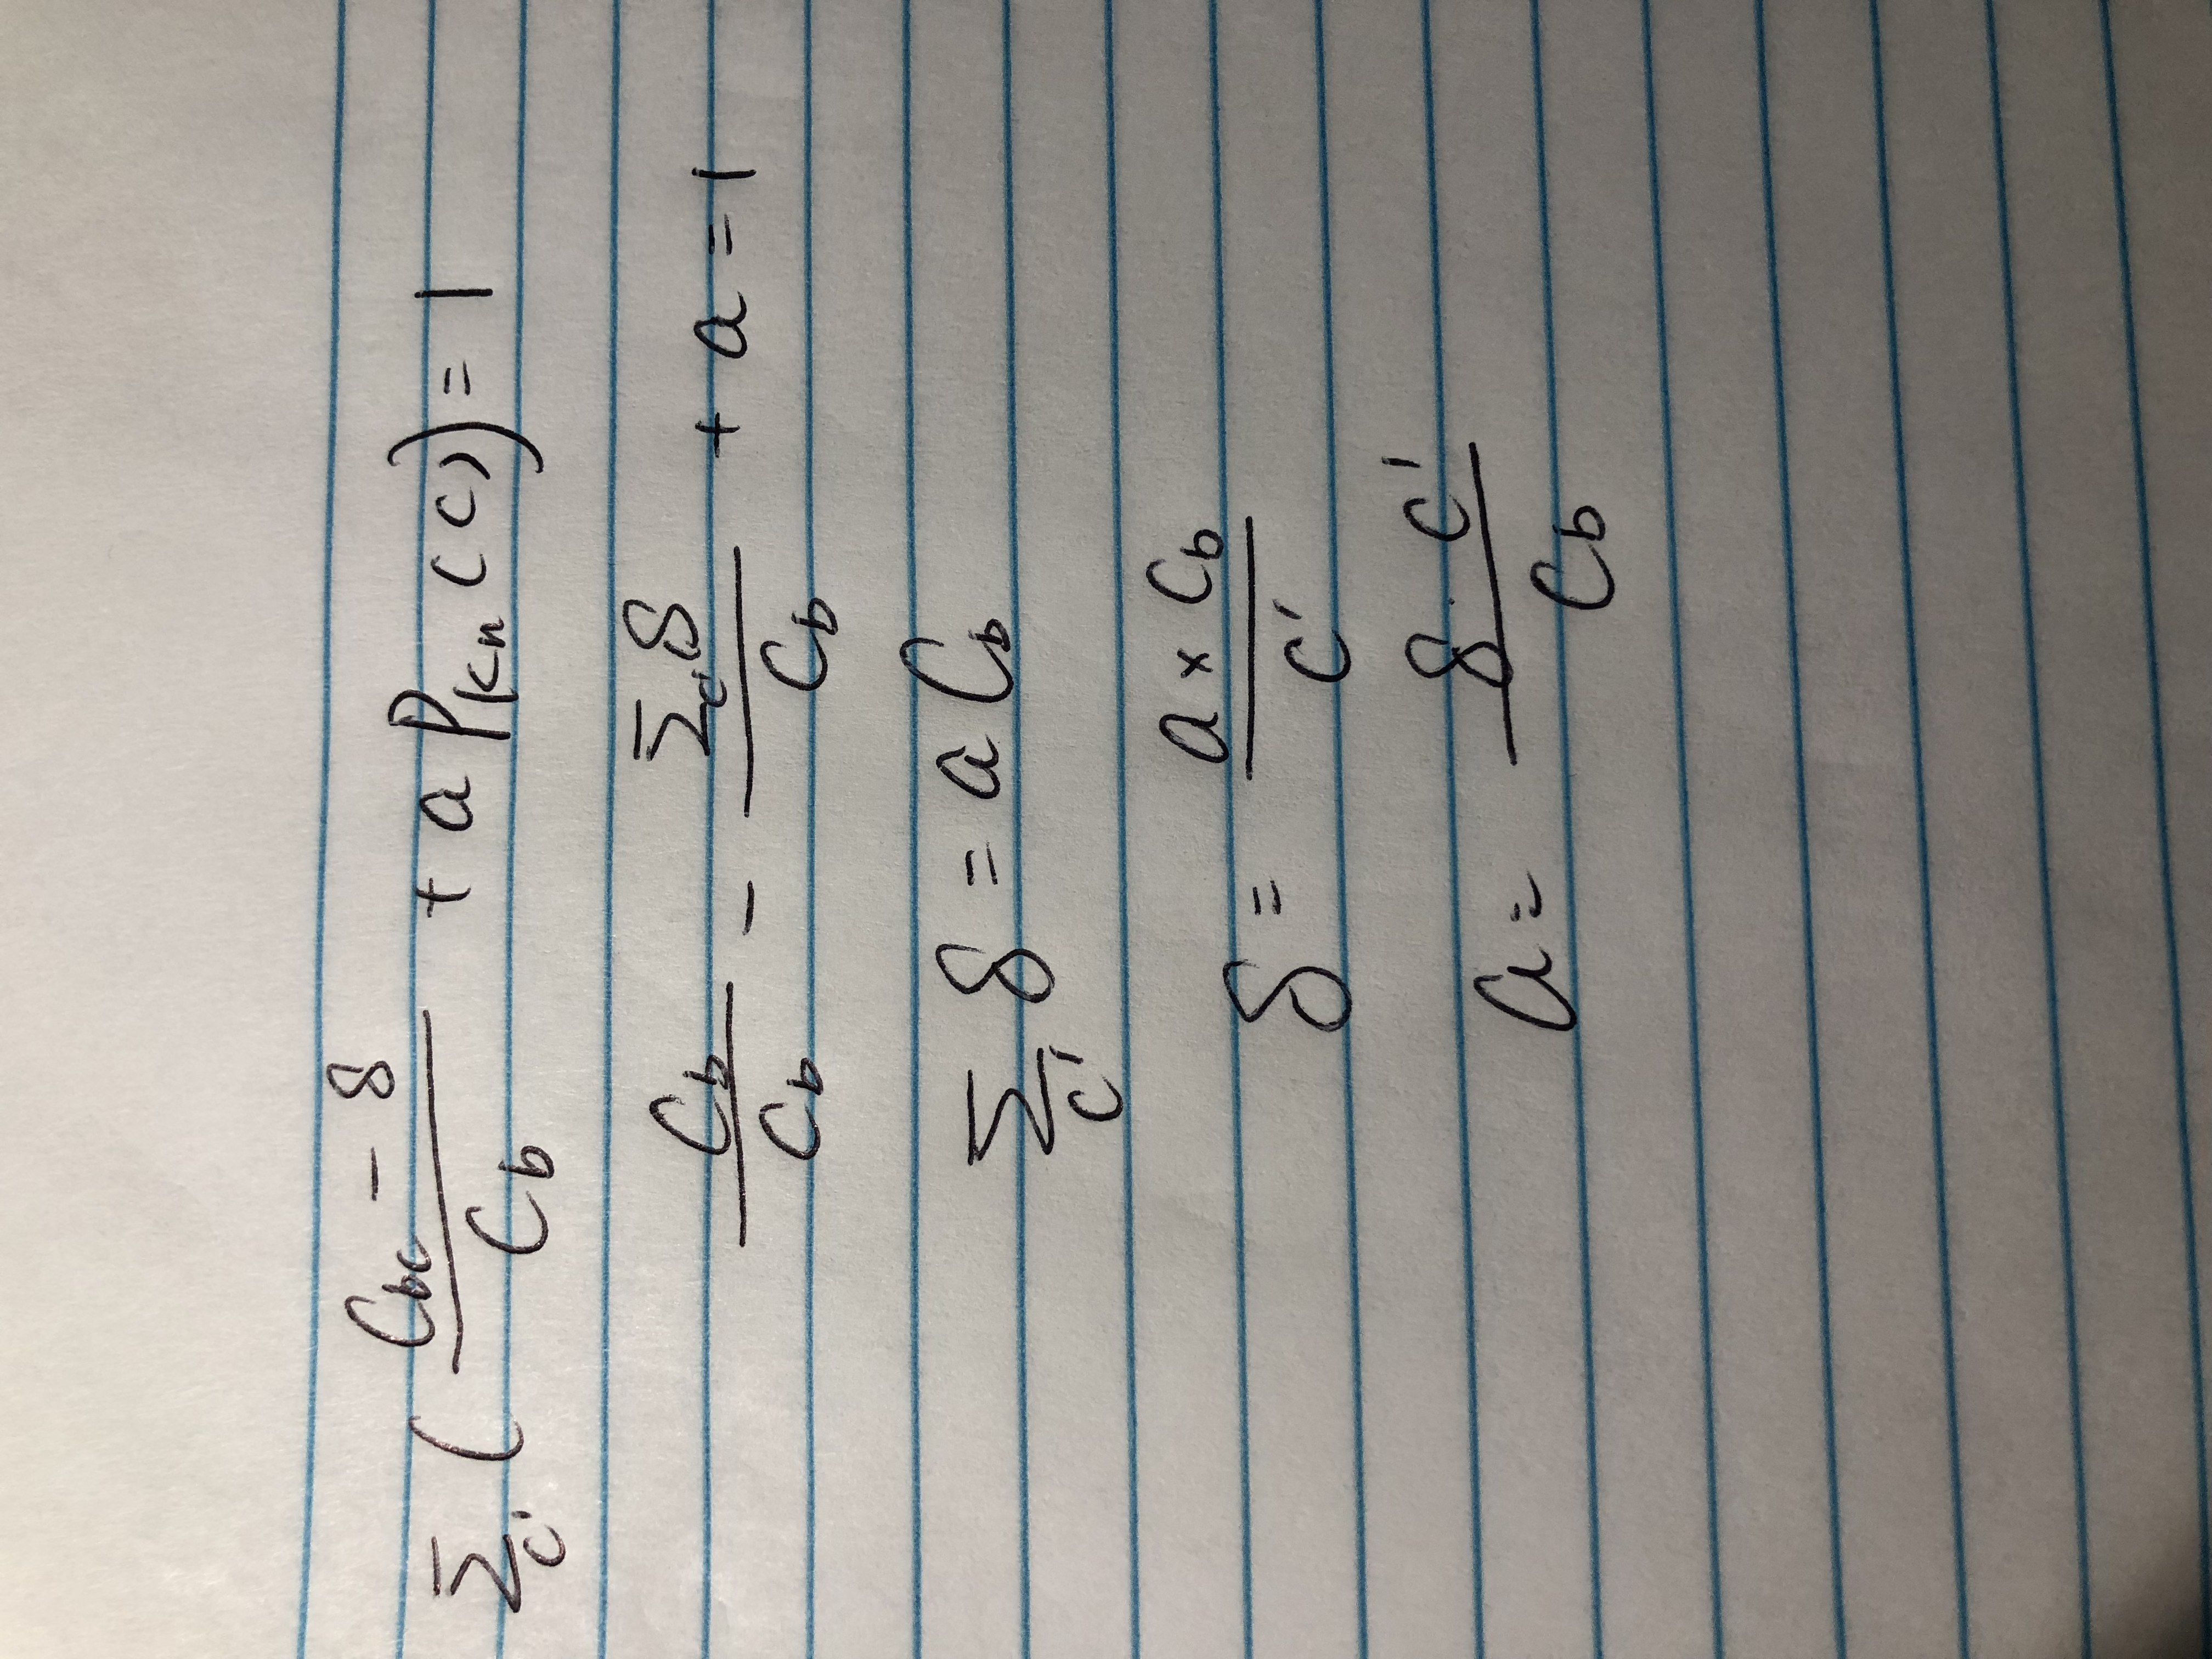 ∑_{c'} ( (C_{bc} - δ) / C_b + a P_{kn}(c) ) = 1
C_b / C_b - ∑_{c'} δ / C_b + a = 1
∑_{c'} δ = a C_b
δ = (a × C_b) / c'
a = (δ · c') / C_b